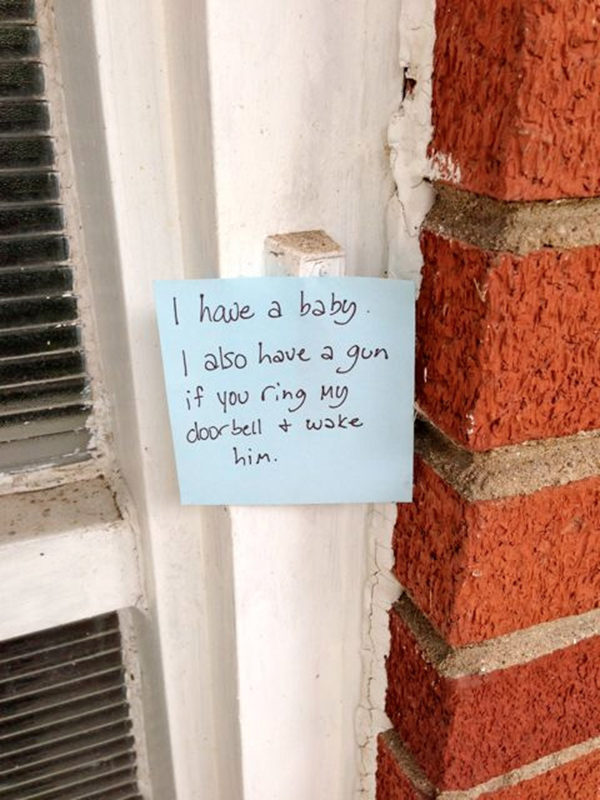 I have a baby.
I also have a gun
if you ring my
doorbell + wake
him.